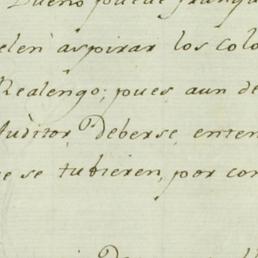 Dueño puede franqu
elen aspirar los Colo
Realengo; pues aun de
Auditor, Deberse enten
e se tubieren, por con